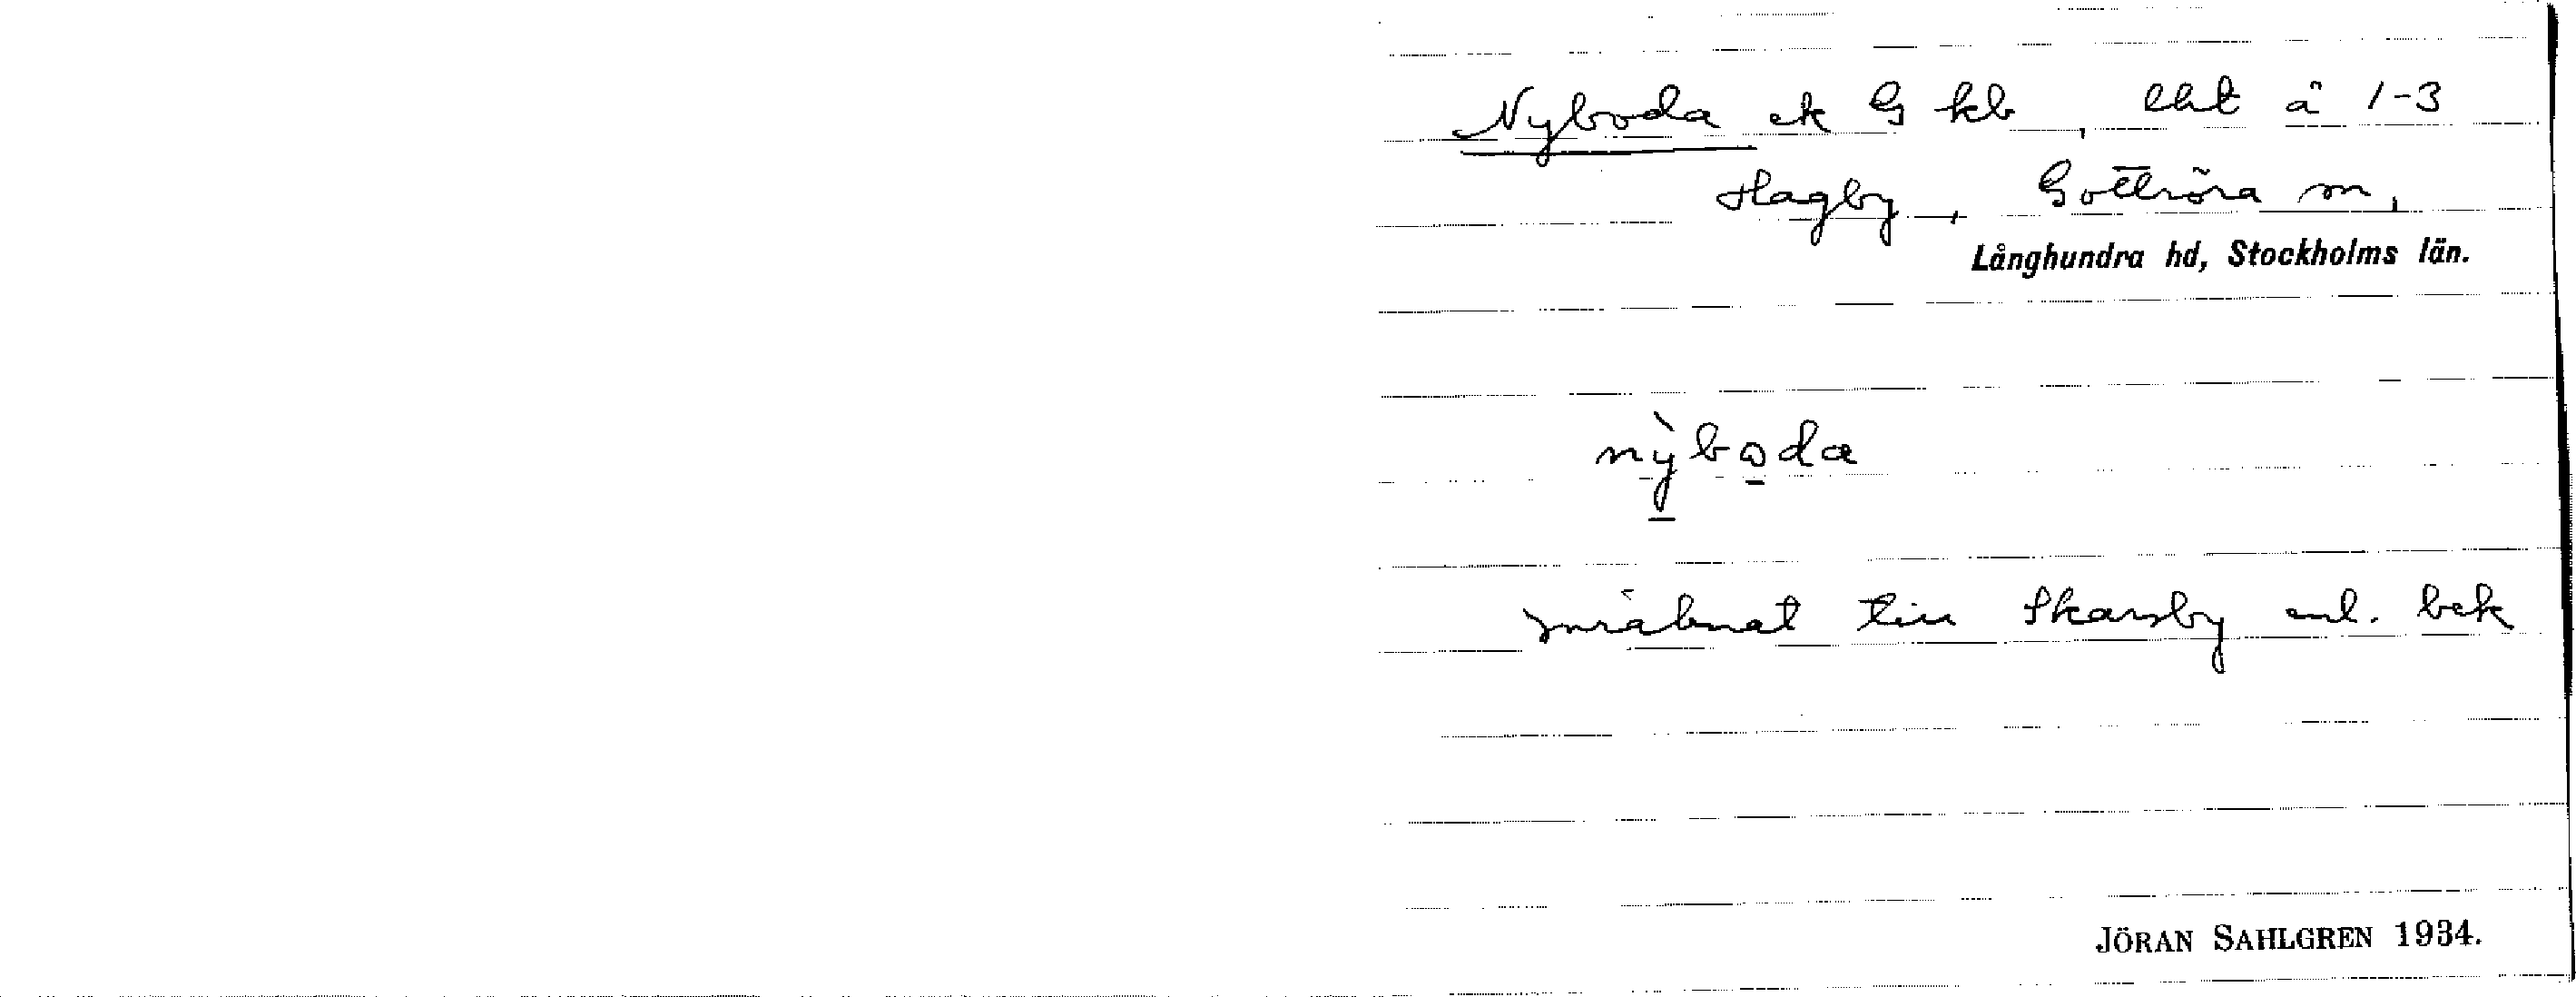 Nyboda ek G kb, lht å 1-3
Hagby, Gottröra sn,
Långhundra hd, Stockholms län.
nỳboda
inräknat till Skarsby enl. bek
JÖRAN SAHLGREN 1934.